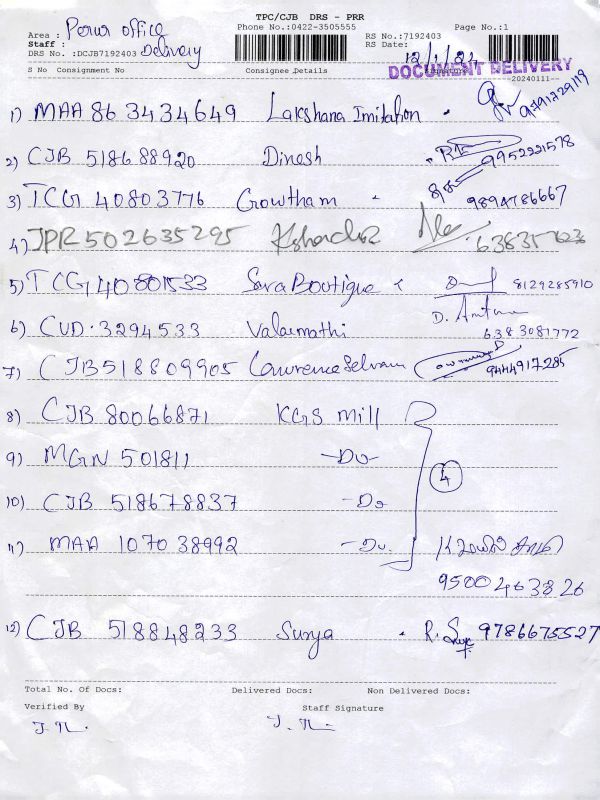 TPC/CJB DRS - PRR
Phone No.:0422-3505555
Page No.:1
Area : Perur office
Staff :
DRS No. :DCJB7192403 Delivery
RS No.:7192403
RS Date:
DOCUMENT DELIVERY
20240111
S No Consignment No Consignee Details
1) MAA 863434649 Lakshana Imitation
2) CJB 518688920 Dinesh 9952221578
3) TCG 40803776 Gowtham 9894786667
4) JPR 502635295
5) TCG 40801533 Sara Boutique 8129285910
6) CUD. 3294533 Valarmathi 6383081772
7) CJB 518809905 Lawrence Selvam 9444917285
8) CJB 80066871 KGS Mill
9) MGN 501811 -Do-
4
10) CJB 518678837 -Do
11) MAA 107038992 -Do.
9500463826
12) CJB 518848233 Surya R. 9786675527
Total No. Of Docs: Delivered Docs: Non Delivered Docs:
Verified By Staff Signature